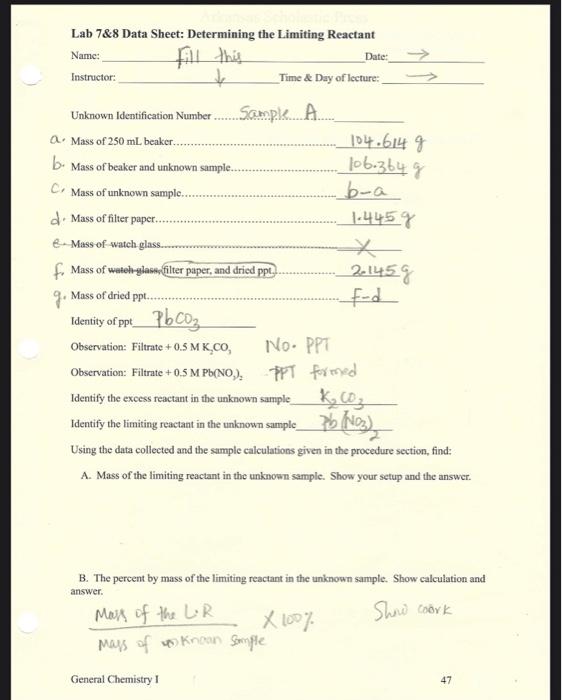 Arkansas Scholastic Press
Lab 7&8 Data Sheet: Determining the Limiting Reactant
Name: Fill this Date: →
Instructor: ↓ Time & Day of lecture: →
Unknown Identification Number ...... Sample A
a. Mass of 250 mL beaker.... 104.614 g
b. Mass of beaker and unknown sample.... 106.364 g
c. Mass of unknown sample.... b-a
d. Mass of filter paper.... 1.445 g
e. Mass of watch glass.... X
f. Mass of watch glass, filter paper, and dried ppt.... 2.145 g
g. Mass of dried ppt.... f-d
Identity of ppt PbCO3
Observation: Filtrate + 0.5 M K2CO3 No. PPT
Observation: Filtrate + 0.5 M Pb(NO3)2 PPT formed
Identify the excess reactant in the unknown sample K2CO3
Identify the limiting reactant in the unknown sample Pb(NO3)2
Using the data collected and the sample calculations given in the procedure section, find:
A. Mass of the limiting reactant in the unknown sample. Show your setup and the answer.
B. The percent by mass of the limiting reactant in the unknown sample. Show calculation and
answer.
Mass of the L.R X 100% Show work
Mass of unknown sample
General Chemistry I 47